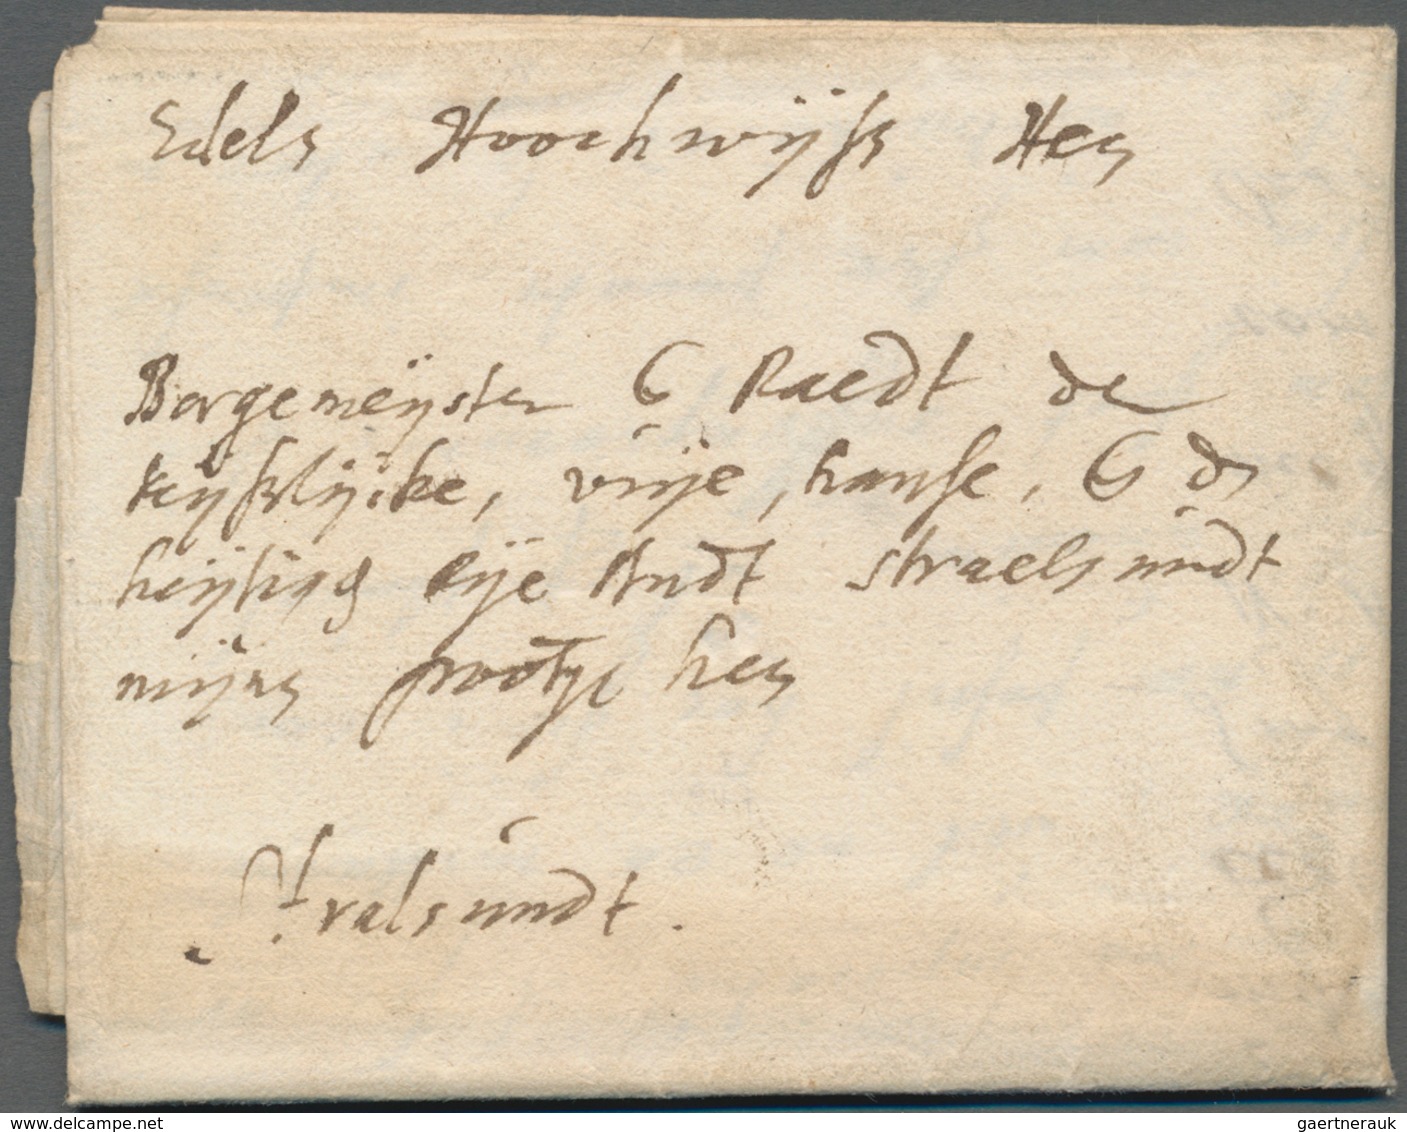 Edels Hoochwijse Hen
Borgemeijster & Raedt der
keijsslijcke, vrije, hanse, & der
heijlig rije Stadt straelsundt
mijne grootge hen
Stralsundt.
www.delcampe.net
gaertnerauk